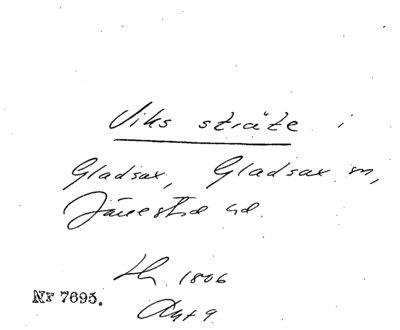 Viks sträte i
Gladsax, Gladsax sn,
Järrestad hd.
1806
Nr 7695.
Akt 9